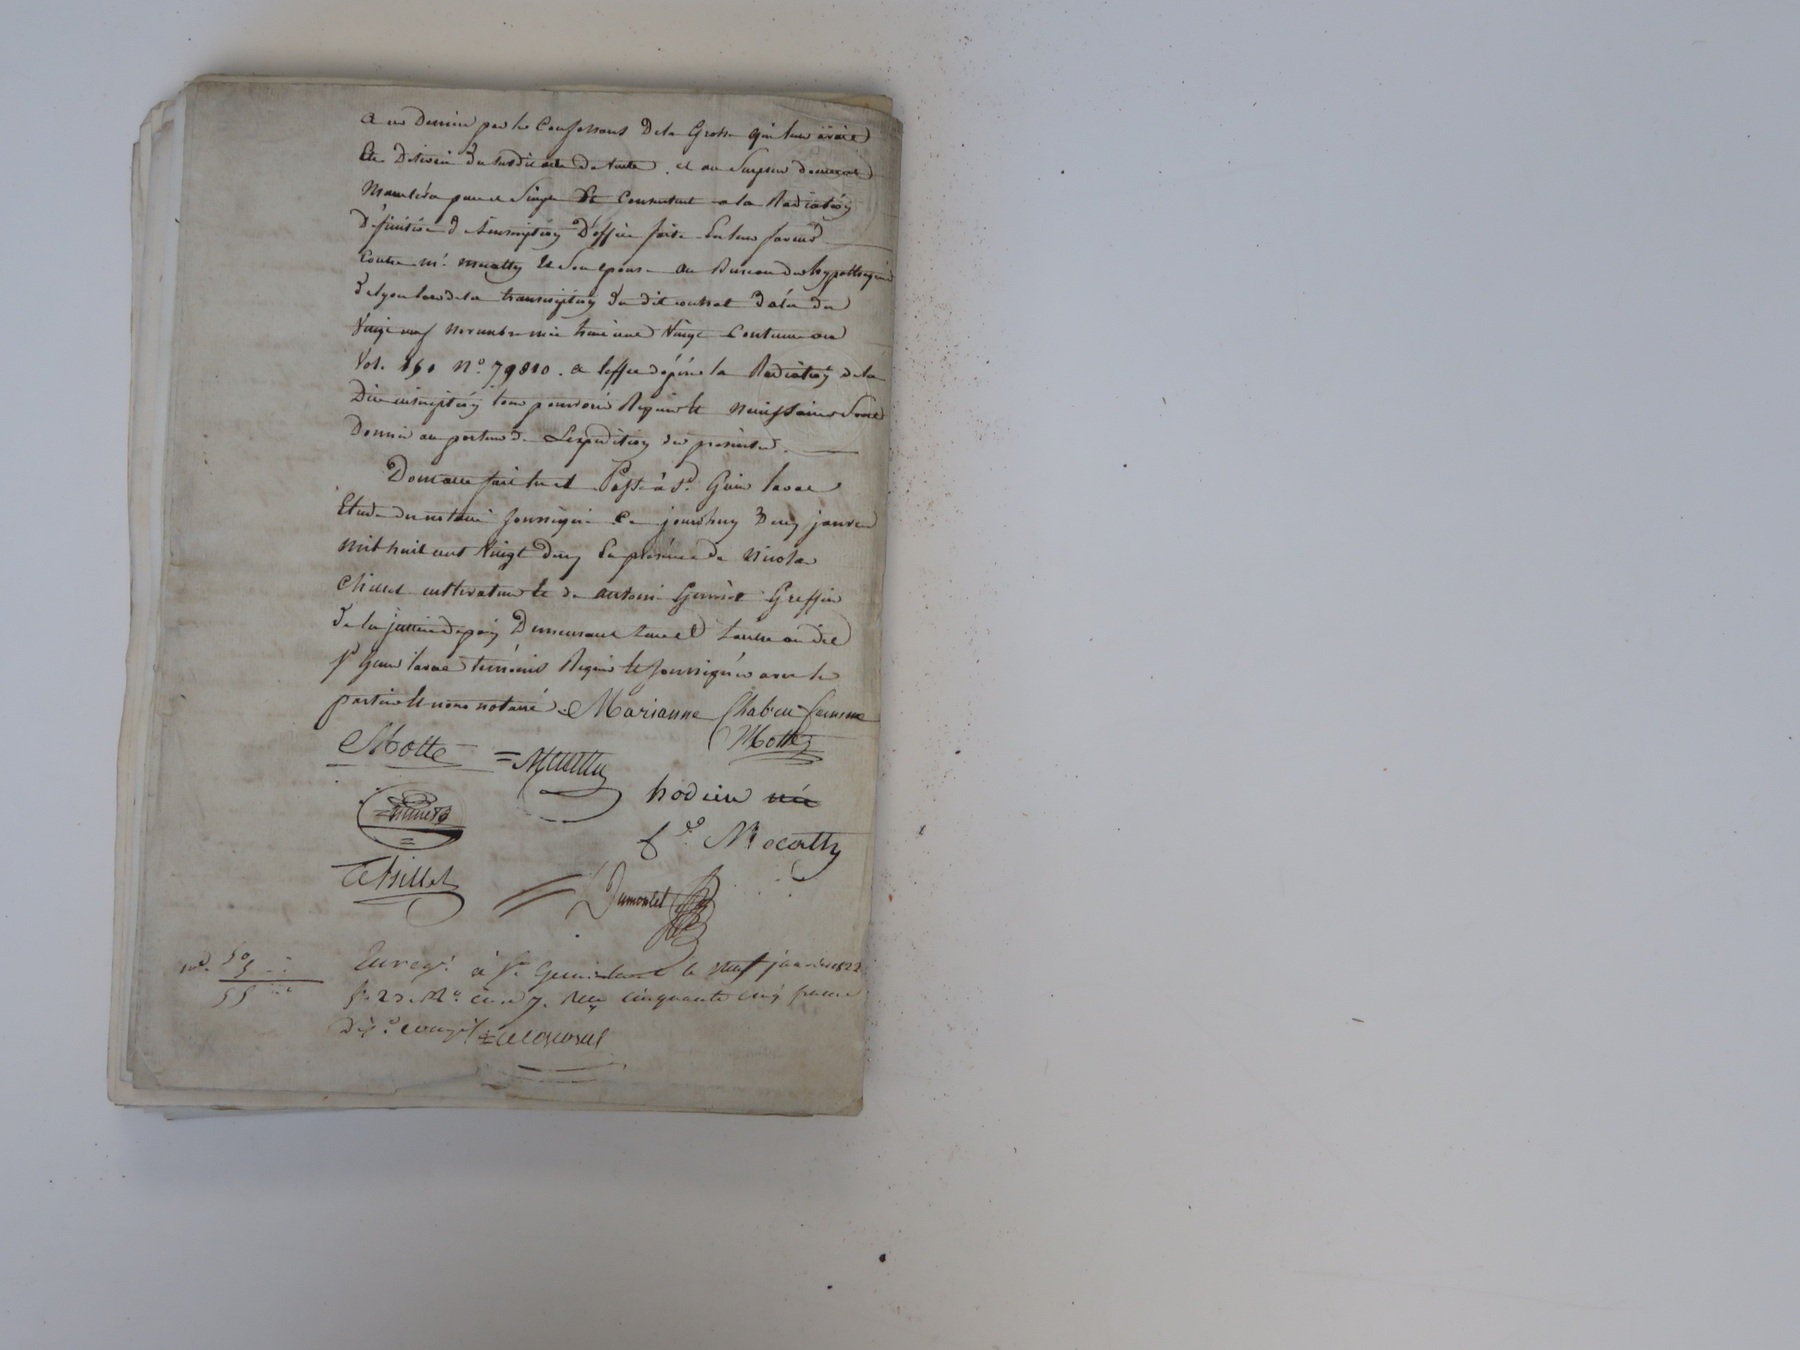 a ce Dernier par les Confessants De la Grosse qui leur avait
Eté Delivrée du susdit acte De Vente, et au Surplus donnent
Mainlevée pure et Simple Et Consentent a la Radiation
Définitive De Linscription D'office faite En leur faveur
Contre Mr. Mucatty Et Son épouse au Bureau des hypothèques
De Lyon lors de la transcription du dit contrat Datée du
Vingt neuf novembre mil huit cent Vingt Contenue au
Vol. No. 79810. a l'effet d'opérer la Radiation de la
Dite inscription tous pouvoirs Requis Et nécéssaires Sont
Donnés au porteur De L'expédition des présentes.
Dont acte fait lu et Passé à St. Genis laval
Etude du notaire Soussigné Ce jourd'huy Deux janvier
Mil huit cent Vingt Deux En présence De Nicolas
Chillet cultivateur Et De antoine Greffier
De la justice de paix Demeurant tous les Deux au dit
St Genis laval témoins Requis Et Soussignés avec les
parties Et nous notaire. Marianne femme
Motte
Motte
née
Chillet
Dumortet
Enregé. à St. Genis Laval le neuf janvier 1822
fo 27 Ro. case 7. Reçu cinquante cinq francs
50
5
55